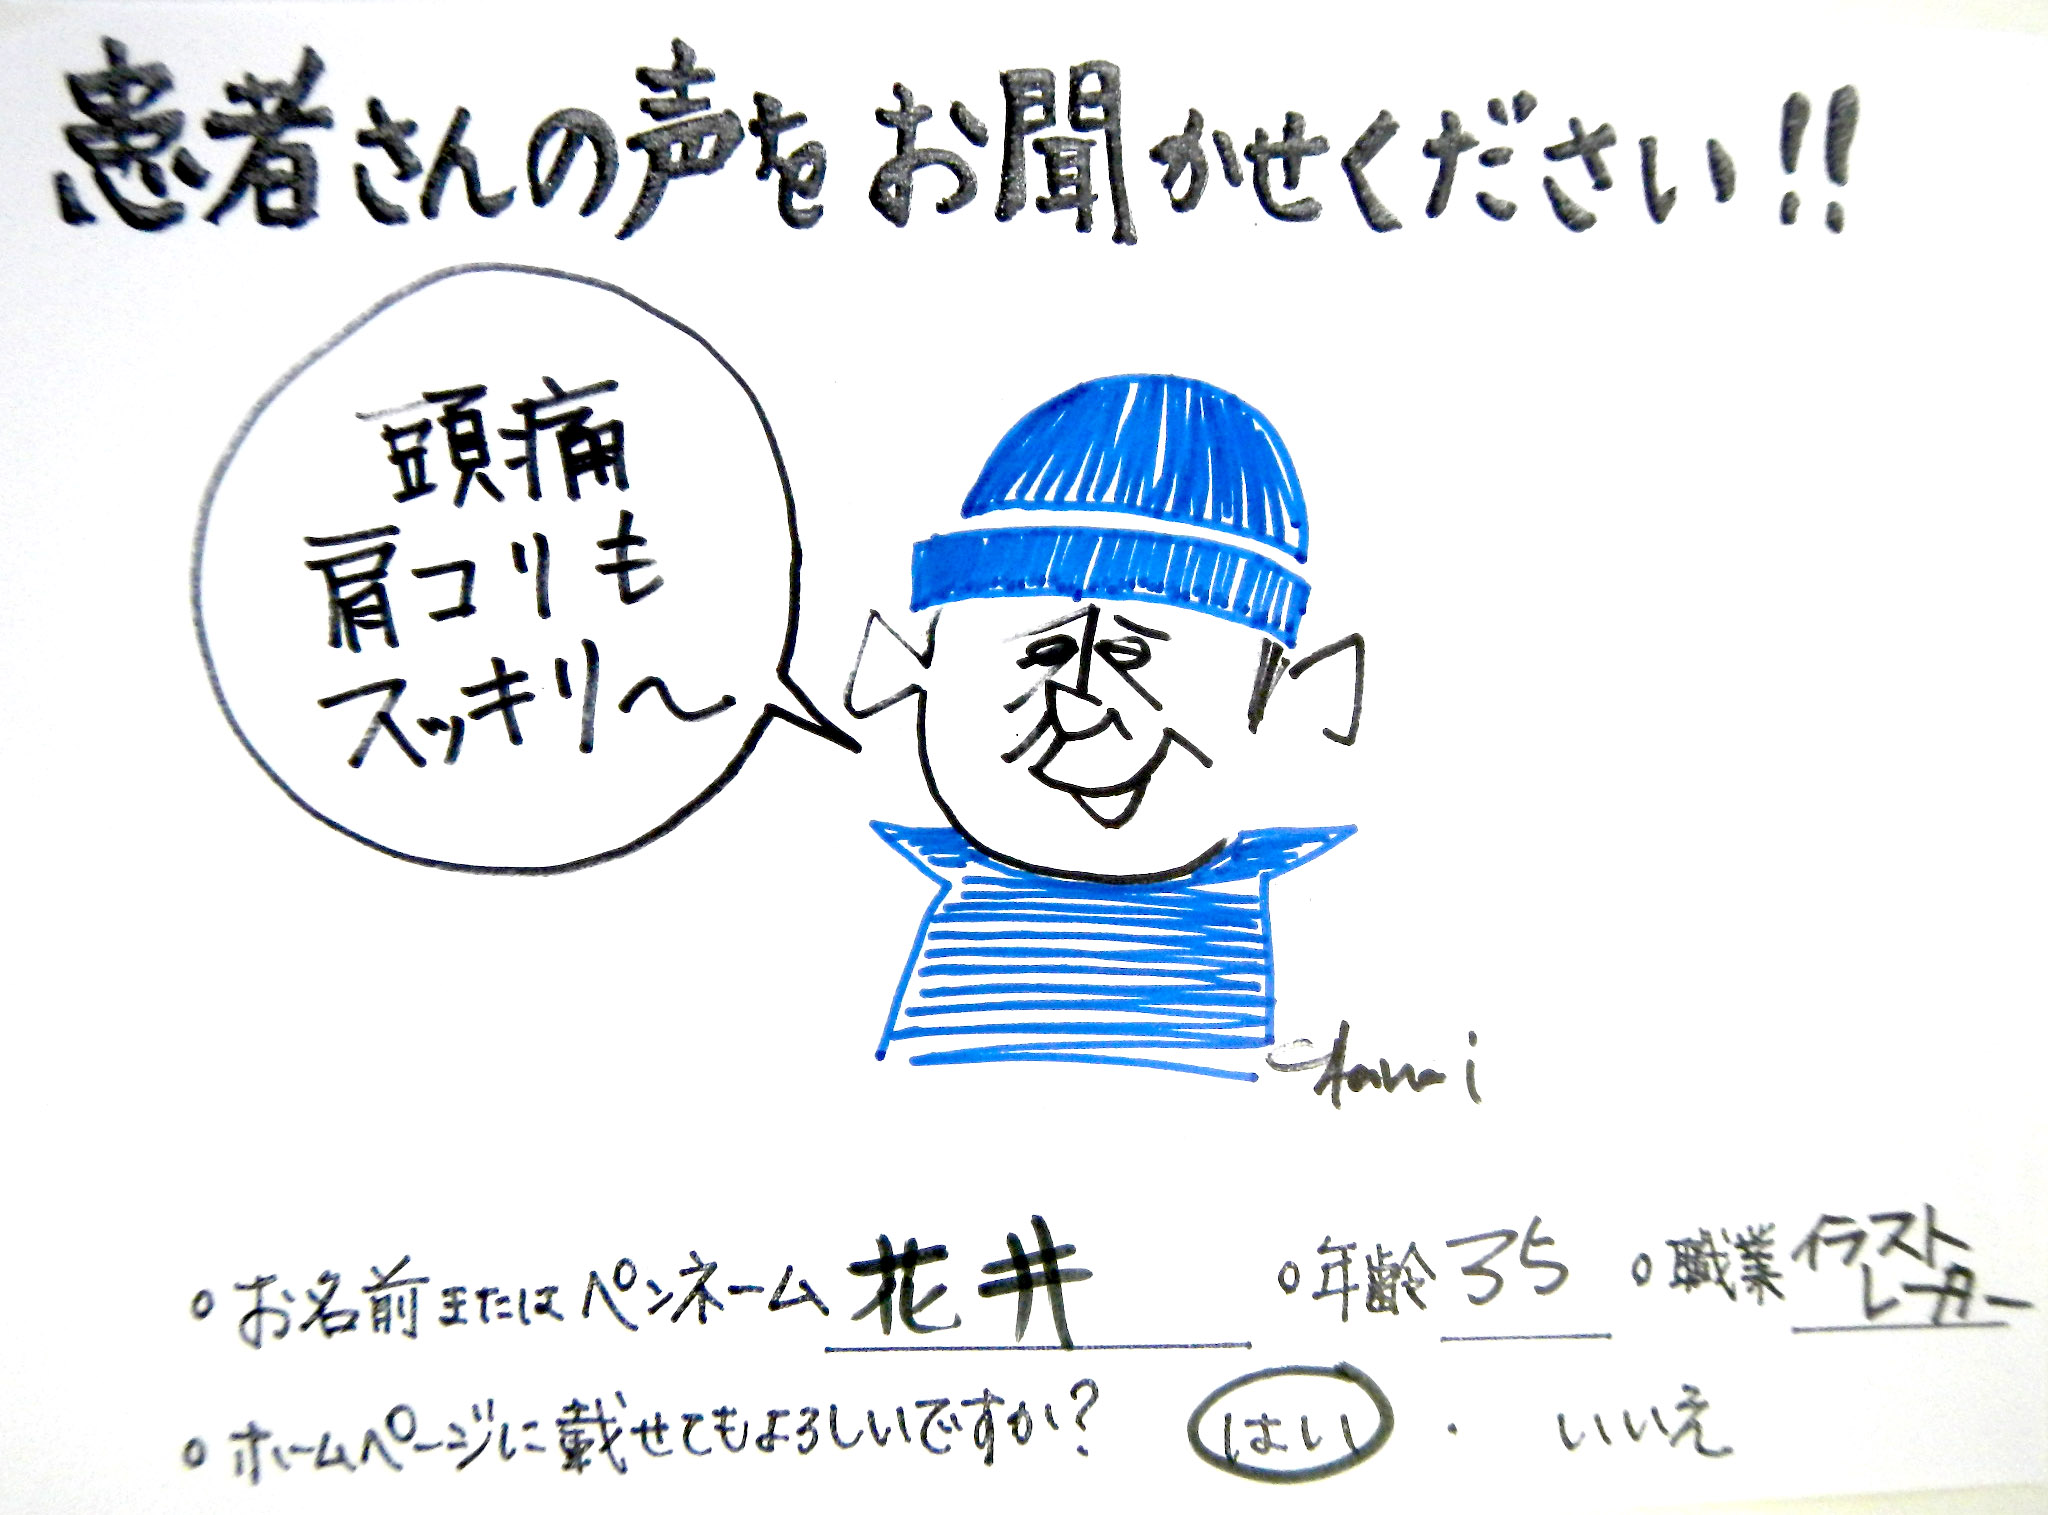 患者さんの声をお聞かせください!!
頭痛
肩コリも
スッキリ〜
お名前またはペンネーム 花井
年齢 35
職業 イラスト
レーター
ホームページに載せてもよろしいですか?
はい ・ いいえ